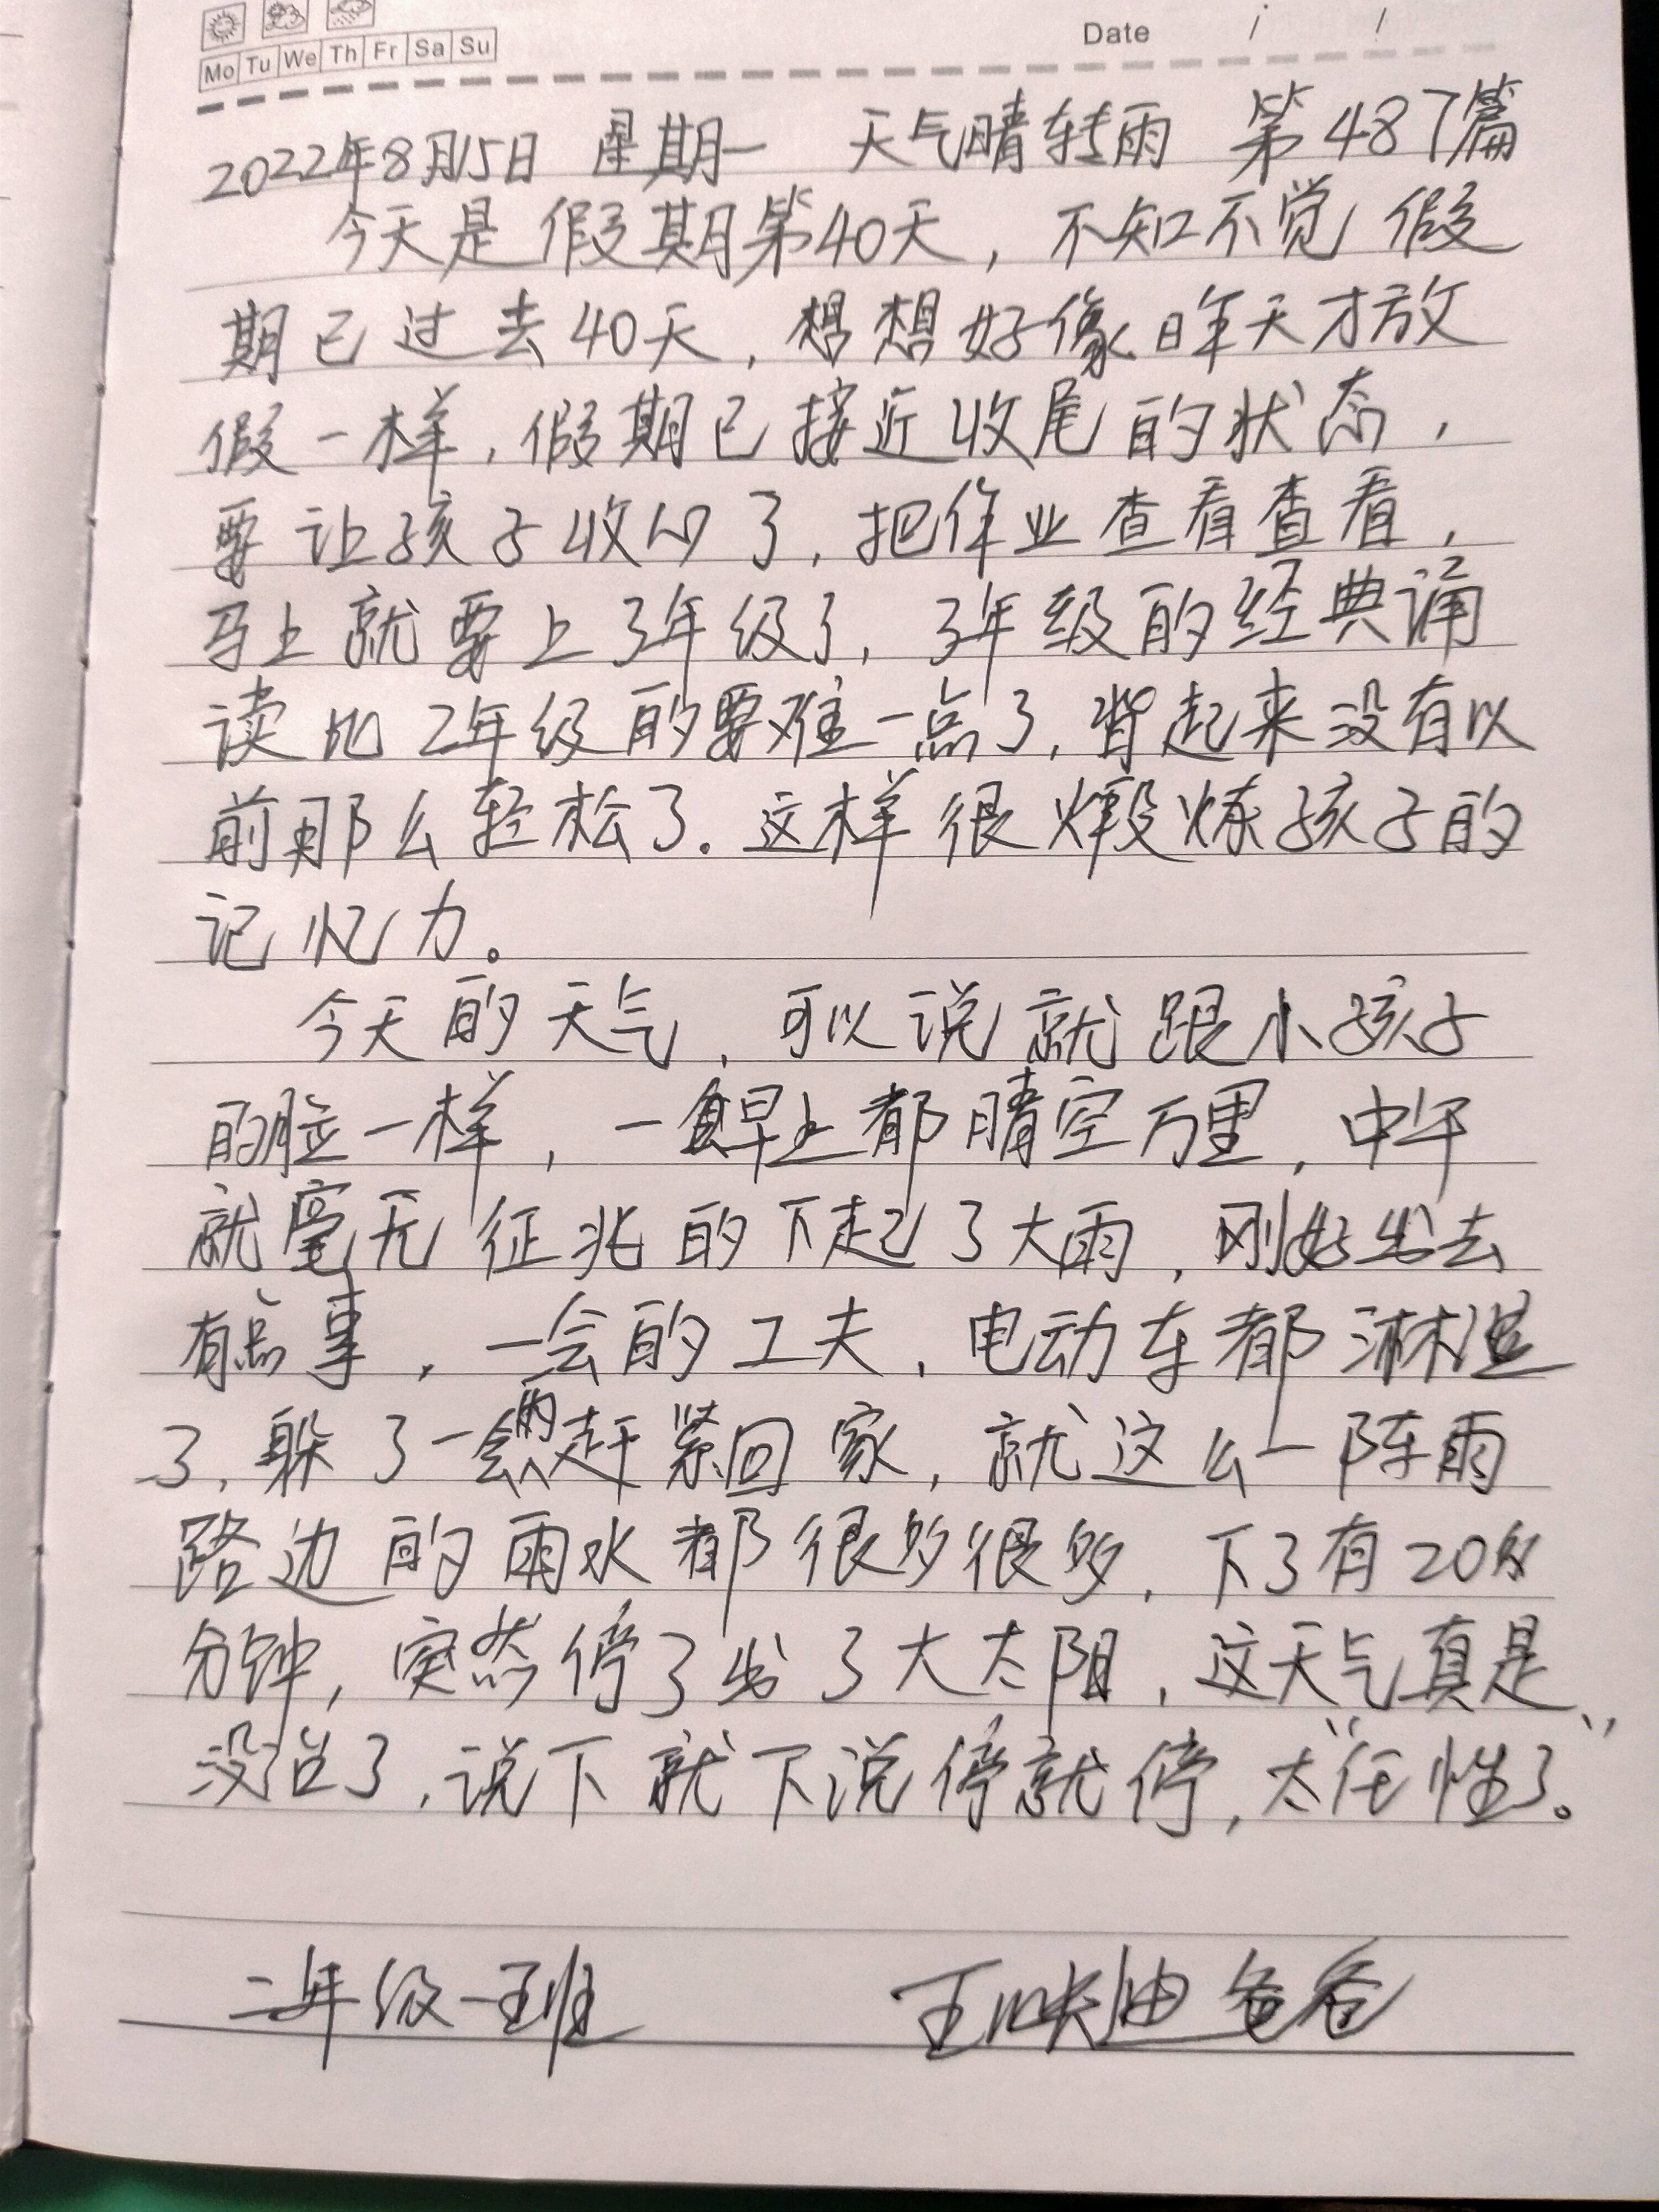 Mo Tu We Th Fr Sa Su
Date
2022年8月15日 星期一 天气晴转雨 第487篇
今天是假期第40天，不知不觉假
期已过去40天，想想好像昨天才放
假一样，假期已接近收尾的状态，
要让孩子收心了，把作业查看查看，
马上就要上3年级了，3年级的经典诵
读比2年级的要难一点了，背起来没有以
前那么轻松了。这样很煅炼孩子的
记忆力。
今天的天气，可以说就跟小孩子
的脸一样，一早上都晴空万里，中午
就毫无征兆的下起了大雨，刚好出去
有点事，一会的工夫，电动车都淋湿
了，躲了一会雨赶紧回家，就这么一阵雨
路边的雨水都很多很多，下了有20分
分钟，突然停了出了大太阳，这天气真是
没谁了，说下就下说停就停，太“任性”了。
二年级一班 王映迪爸爸